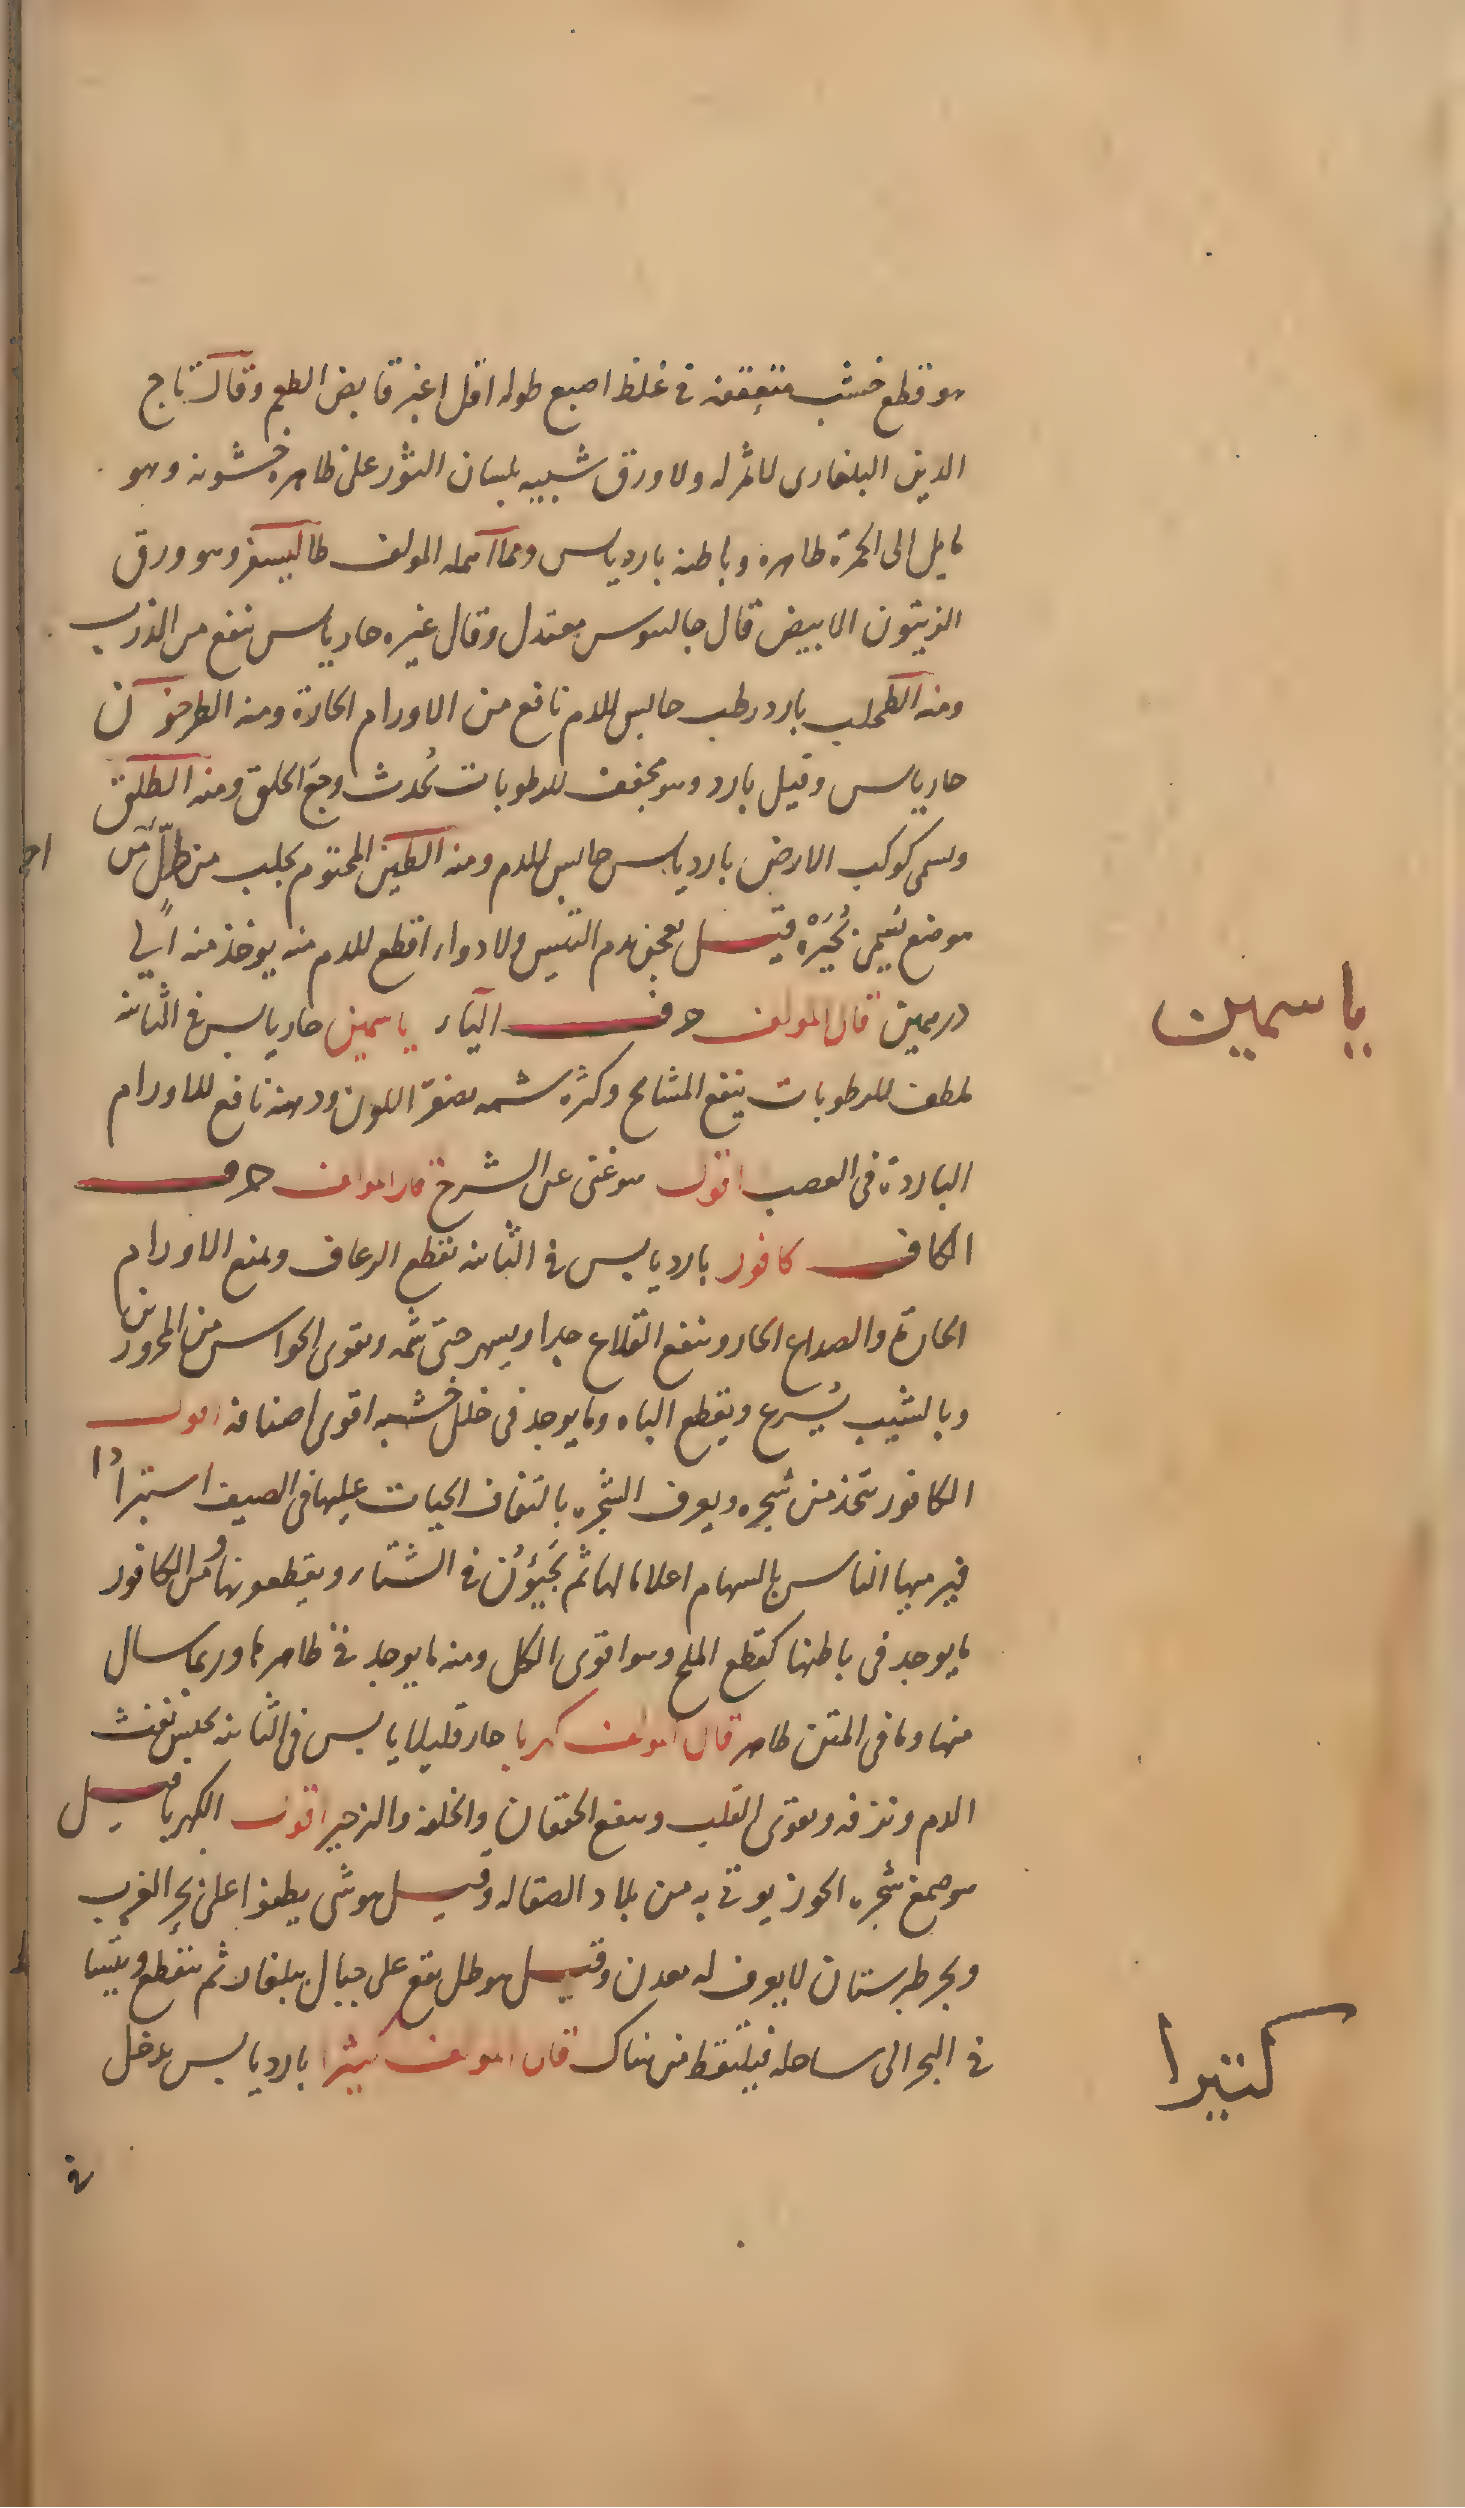 هو قطع خشب متعقفه في غلظ اصبع طوله اقل اغبر قابض الطعم وقال تاج
الدين البلغارى لا ثمر له ولا ورق شبيه بلسان الثور على ظاهره خشونه وهو
مايل الى الحمرة ظاهره وباطنه بارد يابس ومما اهمله المولف طاليسفر وهو ورق
الزيتون الابيض قال جالينوس معتدل وقال غيره حار يابس ينفع من الذرب
ومنه الطحلب بارد رطب حابس للدم نافع من الاورام الحارة ومنه الطرخون
حار يابس وقيل بارد وهو مجفف للرطوبات يُحدث وجع الحلق ومنه الطلق
ويسمى كوكب الارض بارد يابس حابس للدم ومنه الطين المختوم يجلب من طلّ من
موضع يسمى بُحَيْرَة قيل يعجن بدم التيس ولا دواء اقطع للدم منه يوخذ منه الى
درهمين قال المولف حرف الياء ياسمين حار يابس في الثانيه
ملطف للرطوبات ينفع المشايخ وكثرة شمه يصفر اللون ودهنه نافع للاورام
الباردة فى العصب اقول هو غنى عن الشرح قال المولف حرف
الكاف كافور بارد يابس في الثالثه يقطع الرعاف ويمنع الاورام
الحارة والصداع الحار وينفع القلاع جدا ويسهر حتى شمه ويقوى الحواس من المحرورين
وبالشيب يُسرع ويقطع الباه وما يوجد فى خلل خشبه اقوى اصنافه اقول
الكافور يتخذ من شجره ويعرف الشجره بالتفاف الحيات عليها فى الصيف استبرادا
فيرميها الناس بالسهام اعلاما لها ثم يَجيؤُن في الشتاء ويقطعونها ومن الكافور
ما يوجد فى باطنها كقطع الملح وهو اقوى الكل ومنه ما يوجد في ظاهرها وربما سال
منها وما فى المتن ظاهر قال المولف كهربا حار قليلا يابس فى الثانيه يحبس نفث
الدم ونزفه ويقوى القلب وينفع الخفقان والخلفه والزحير اقول الكهربا قيل
هو صمغ شجره الجوز يوتى به من بلاد الصقاله وقيل هو شى يطفوا على بحر الغرب
وبحر طبرستان لا يعرف له معدن وقيل هو طل يقع على جبال ببلغار ثم ينقطع
في البحر الى ساحله فيلتقط من هناك قال المولف كثيرا بارد يابس يدخل
في
ياسمين
كتيرا